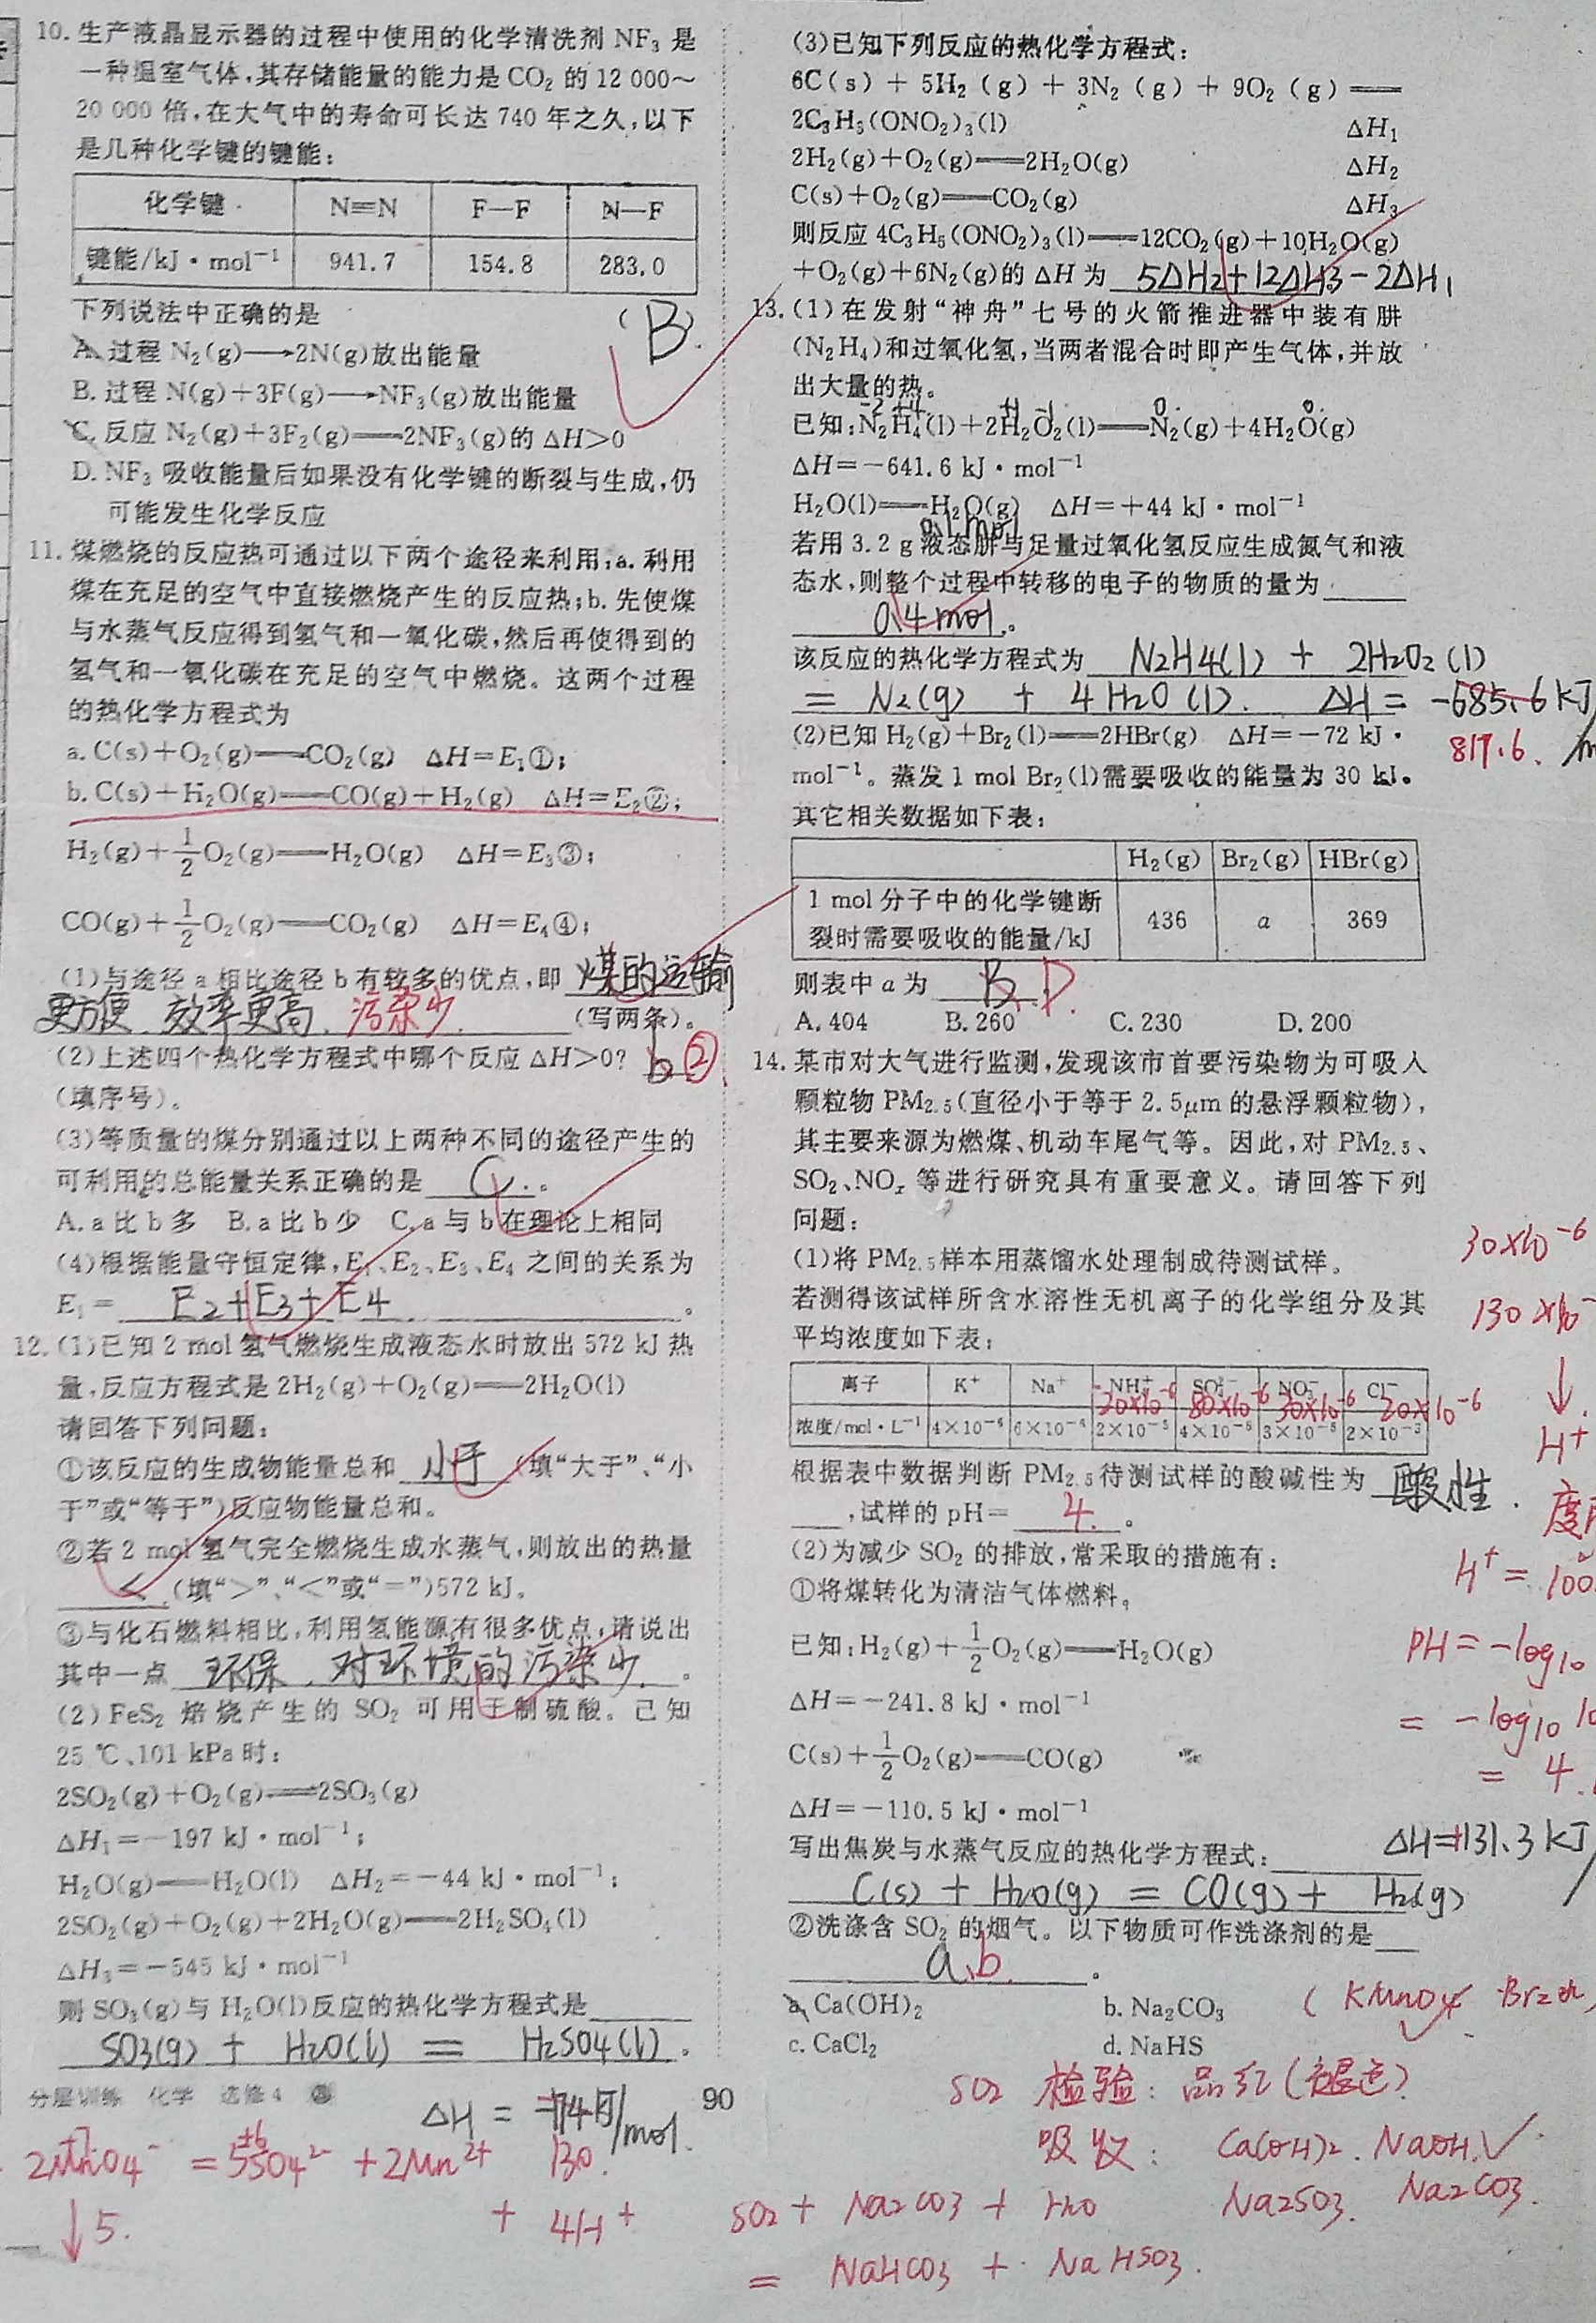 10. 生产液晶显示器的过程中使用的化学清洗剂 NF₃ 是
一种温室气体,其存储能量的能力是 CO₂ 的 12 000～
20 000 倍,在大气中的寿命可长达 740 年之久,以下
是几种化学键的键能:
化学键 N≡N F—F N—F
键能/kJ·mol⁻¹ 941.7 154.8 283.0
下列说法中正确的是 (B)
A. 过程 N₂(g)⟶2N(g)放出能量
B. 过程 N(g)+3F(g)⟶NF₃(g)放出能量
C. 反应 N₂(g)+3F₂(g)══2NF₃(g)的 ΔH>0
D. NF₃ 吸收能量后如果没有化学键的断裂与生成,仍
可能发生化学反应
11. 煤燃烧的反应热可通过以下两个途径来利用:a. 利用
煤在充足的空气中直接燃烧产生的反应热;b. 先使煤
与水蒸气反应得到氢气和一氧化碳,然后再使得到的
氢气和一氧化碳在充足的空气中燃烧。这两个过程
的热化学方程式为
a. C(s)+O₂(g)══CO₂(g) ΔH=E₁①;
b. C(s)+H₂O(g)══CO(g)+H₂(g) ΔH=E₂②;
H₂(g)+1/2O₂(g)══H₂O(g) ΔH=E₃③;
CO(g)+1/2O₂(g)══CO₂(g) ΔH=E₄④;
(1)与途径 a 相比途径 b 有较多的优点,即 煤的运输
更方便、效率更高、污染少. (写两条)。
(2)上述四个热化学方程式中哪个反应 ΔH>0? b ②.
(填序号)。
(3)等质量的煤分别通过以上两种不同的途径产生的
可利用的总能量关系正确的是 C.。
A. a 比 b 多 B. a 比 b 少 C. a 与 b 在理论上相同
(4)根据能量守恒定律,E₁、E₂、E₃、E₄ 之间的关系为
E₁= E₂+E₃+E₄ 。
12. (1)已知 2 mol 氢气燃烧生成液态水时放出 572 kJ 热
量,反应方程式是 2H₂(g)+O₂(g)══2H₂O(l)
请回答下列问题:
①该反应的生成物能量总和 小于 (填“大于”、“小
于”或“等于”)反应物能量总和。
②若 2 mol 氢气完全燃烧生成水蒸气,则放出的热量
< (填“>”、“<”或“=”)572 kJ。
③与化石燃料相比,利用氢能源有很多优点,请说出
其中一点 环保、对环境的污染少. 。
(2)FeS₂ 焙烧产生的 SO₂ 可用于制硫酸。已知
25 ℃、101 kPa 时:
2SO₂(g)+O₂(g)══2SO₃(g)
ΔH₁=−197 kJ·mol⁻¹;
H₂O(g)══H₂O(l) ΔH₂=−44 kJ·mol⁻¹;
2SO₂(g)+O₂(g)+2H₂O(g)══2H₂SO₄(l)
ΔH₃=−545 kJ·mol⁻¹
则 SO₃(g)与 H₂O(l)反应的热化学方程式是
SO₃(g) + H₂O(l) = H₂SO₄(l).
ΔH = /mol.
130.
分层训练 化学 选修4
90
2MnO₄⁻ = 5SO₄²⁻ + 2Mn²⁺
+ 4H⁺
↓5.
(3)已知下列反应的热化学方程式:
6C(s) + 5H₂(g) + 3N₂(g) + 9O₂(g)══
2C₃H₅(ONO₂)₃(l) ΔH₁
2H₂(g)+O₂(g)══2H₂O(g) ΔH₂
C(s)+O₂(g)══CO₂(g) ΔH₃
则反应 4C₃H₅(ONO₂)₃(l)══12CO₂(g)+10H₂O(g)
+O₂(g)+6N₂(g)的 ΔH 为 5ΔH₂+12ΔH₃−2ΔH₁
13. (1)在发射“神舟”七号的火箭推进器中装有肼
(N₂H₄)和过氧化氢,当两者混合时即产生气体,并放
出大量的热。
已知:N₂H₄(l)+2H₂O₂(l)══N₂(g)+4H₂O(g)
ΔH=−641.6 kJ·mol⁻¹
H₂O(l)══H₂O(g) ΔH=+44 kJ·mol⁻¹
0.1mol
若用 3.2 g 液态肼与足量过氧化氢反应生成氮气和液
态水,则整个过程中转移的电子的物质的量为
0.4mol.。
该反应的热化学方程式为 N₂H₄(l) + 2H₂O₂(l)
= N₂(g) + 4H₂O(l). ΔH = −685.6 kJ/
817.6.
(2)已知 H₂(g)+Br₂(l)══2HBr(g) ΔH=−72 kJ·
mol⁻¹。蒸发 1 mol Br₂(l)需要吸收的能量为 30 kJ。
其它相关数据如下表:
H₂(g) Br₂(g) HBr(g)
1 mol 分子中的化学键断
裂时需要吸收的能量/kJ 436 a 369
则表中 a 为 B D.
A. 404 B. 260 C. 230 D. 200
14. 某市对大气进行监测,发现该市首要污染物为可吸入
颗粒物 PM₂.₅(直径小于等于 2.5μm 的悬浮颗粒物),
其主要来源为燃煤、机动车尾气等。因此,对 PM₂.₅、
SO₂、NOₓ 等进行研究具有重要意义。请回答下列
问题:
(1)将 PM₂.₅ 样本用蒸馏水处理制成待测试样。
若测得该试样所含水溶性无机离子的化学组分及其
平均浓度如下表:
离子 K⁺ Na⁺ NH₄⁺ SO₄²⁻ NO₃⁻ Cl⁻
20×10⁻⁶ 80×10⁻⁶ 30×10⁻⁶ 20×10⁻⁶
浓度/mol·L⁻¹ 4×10⁻⁶ 6×10⁻⁶ 2×10⁻⁵ 4×10⁻⁵ 3×10⁻⁵ 2×10⁻⁵
根据表中数据判断 PM₂.₅ 待测试样的酸碱性为 酸性.
,试样的 pH= 4. 。
30×10⁻⁶
130×10⁻
↓
H⁺
H⁺ = 100
PH = −log₁₀
= −log₁₀
= 4.
(2)为减少 SO₂ 的排放,常采取的措施有:
①将煤转化为清洁气体燃料。
已知:H₂(g)+1/2O₂(g)══H₂O(g)
ΔH=−241.8 kJ·mol⁻¹
C(s)+1/2O₂(g)══CO(g)
ΔH=−110.5 kJ·mol⁻¹
写出焦炭与水蒸气反应的热化学方程式: ΔH=+131.3 kJ/
C(s) + H₂O(g) = CO(g) + H₂(g)
②洗涤含 SO₂ 的烟气。以下物质可作洗涤剂的是
a、b. 。
a. Ca(OH)₂ b. Na₂CO₃
c. CaCl₂ d. NaHS
(KMnO₄ Br₂
SO₂ 检验: 品红(褪色).
吸收: Ca(OH)₂. NaOH.✓
Na₂SO₃. Na₂CO₃.
SO₂ + Na₂CO₃ + H₂O
= NaHCO₃ + NaHSO₃.